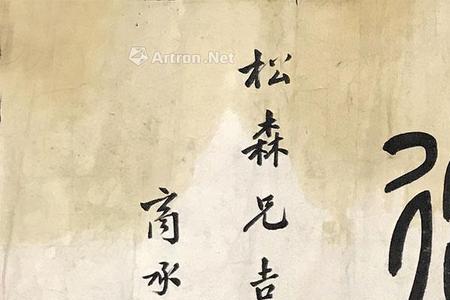 松森兄吉
商承
Artron.Net